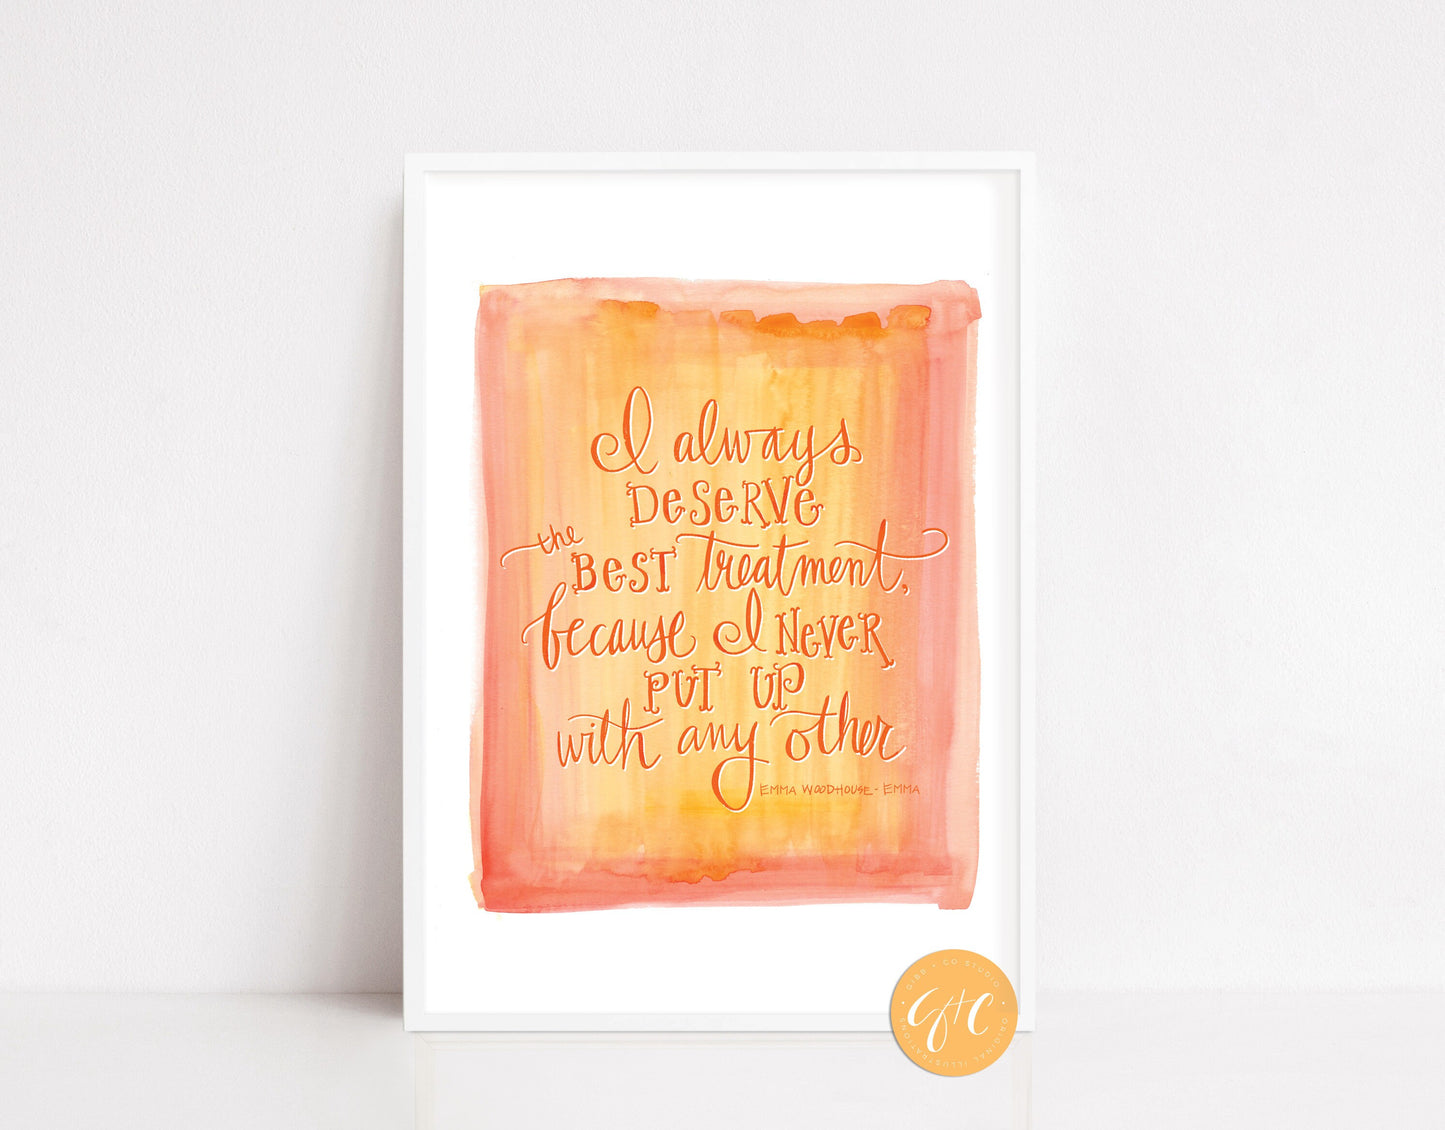 I always
DESERVE
the
BEST treatment,
because I NEVER
PUT UP
with any other
EMMA WOODHOUSE - EMMA
GIBB + CO STUDIO
G+C
ORIGINAL ILLUSTRATIONS